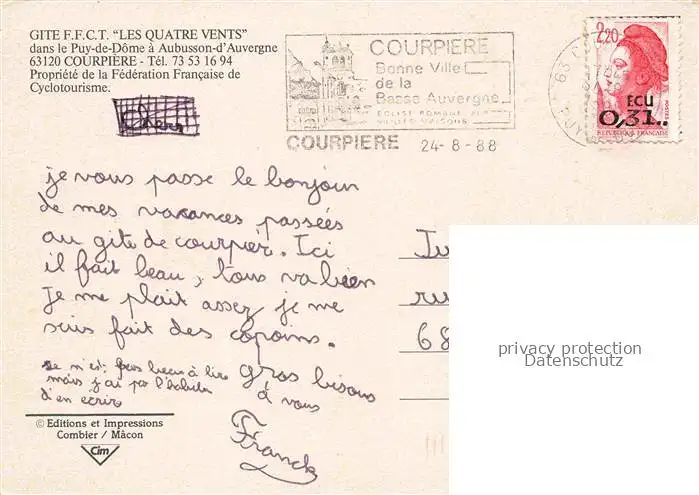 GITE F.F.C.T. "LES QUATRE VENTS"
dans le Puy-de-Dôme à Aubusson-d'Auvergne
63120 COURPIÈRE - Tél. 73 53 16 94
Propriété de la Fédération Française de
Cyclotourisme.
COURPIERE
Bonne Ville
de la
Basse Auvergne
EGLISE ROMANE
VIEILLES MAISONS
COURPIERE 24-8-88
2,20
ECU
0,31..
POSTES
REPUBLIQUE FRANÇAISE
je vous passe le bonjour
de mes vacances passées
au gite de courpièr. Ici
il fait beau, tous va bien
Je me plait assez, je me
suis fait des copoins.
se n'est pas beau à lire
mais j'ai pas l'habitu
d'en ecrire
gros bisous
à vous
Franck
Ju
ru
68
privacy protection
Datenschutz
© Editions et Impressions
Combier / Mâcon
Cim